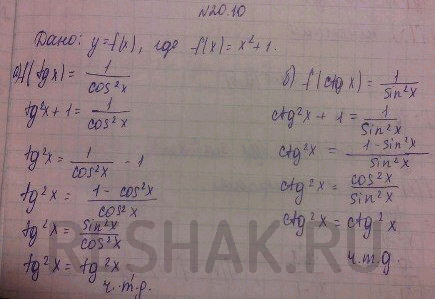 N20.10
Дано: y=f(x), где f(x)=x²+1.
а) f(tgx) = 1/cos²x
tg²x+1 = 1/cos²x
tg²x = 1/cos²x - 1
tg²x = 1-cos²x/cos²x
tg²x = sin²x/cos²x
tg²x = tg²x
ч.т.д.
б) f(ctgx) = 1/sin²x
ctg²x + 1 = 1/sin²x
ctg²x = 1-sin²x/sin²x
ctg²x = cos²x/sin²x
ctg²x = ctg²x
ч.т.д.
RESHAK.RU